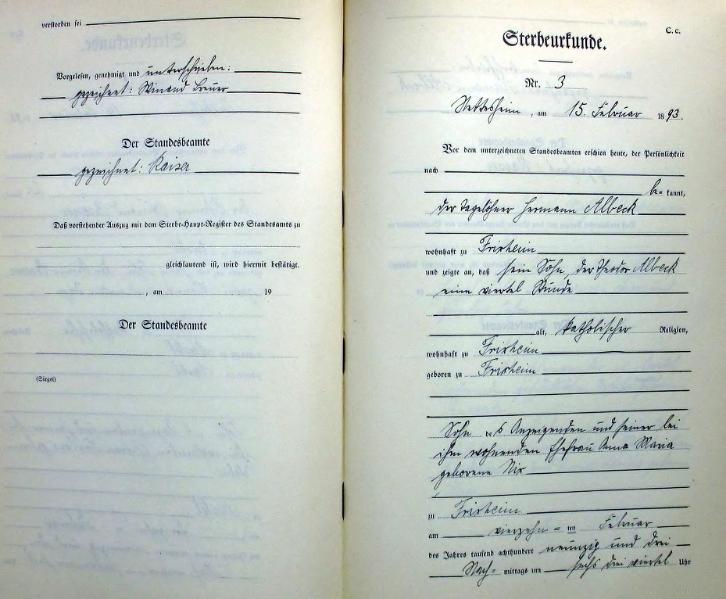 verstorben sei
Vorgelesen, genehmigt und unterschrieben:
gezeichnet: Winand Breuer
Der Standesbeamte
gezeichnet: Kaiser
Daß vorstehender Auszug mit dem Sterbe-Haupt-Register des Standesamts zu
gleichlautend ist, wird hiermit bestätigt.
, am 19
Der Standesbeamte
(Siegel)
C. c.
Sterbeurkunde.
Nr. 3
am 15. Februar 1893.
Vor dem unterzeichneten Standesbeamten erschien heute, der Persönlichkeit
nach
be= kannt,
der Tagelöhner Hermann Albeck
wohnhaft zu Frixheim
und zeigte an, daß sein Sohn, der Theodor Albeck
eine viertel Stunde
alt, katholischer Religion,
wohnhaft zu Frixheim
geboren zu Frixheim
Sohn des Anzeigenden und seiner bei
ihm wohnenden Ehefrau Anna Maria
geborene Nix
zu Frixheim
am vierzehn = ten Februar
des Jahres tausend achthundert neunzig und drei
Nach= mittags um sechs drei viertel Uhr